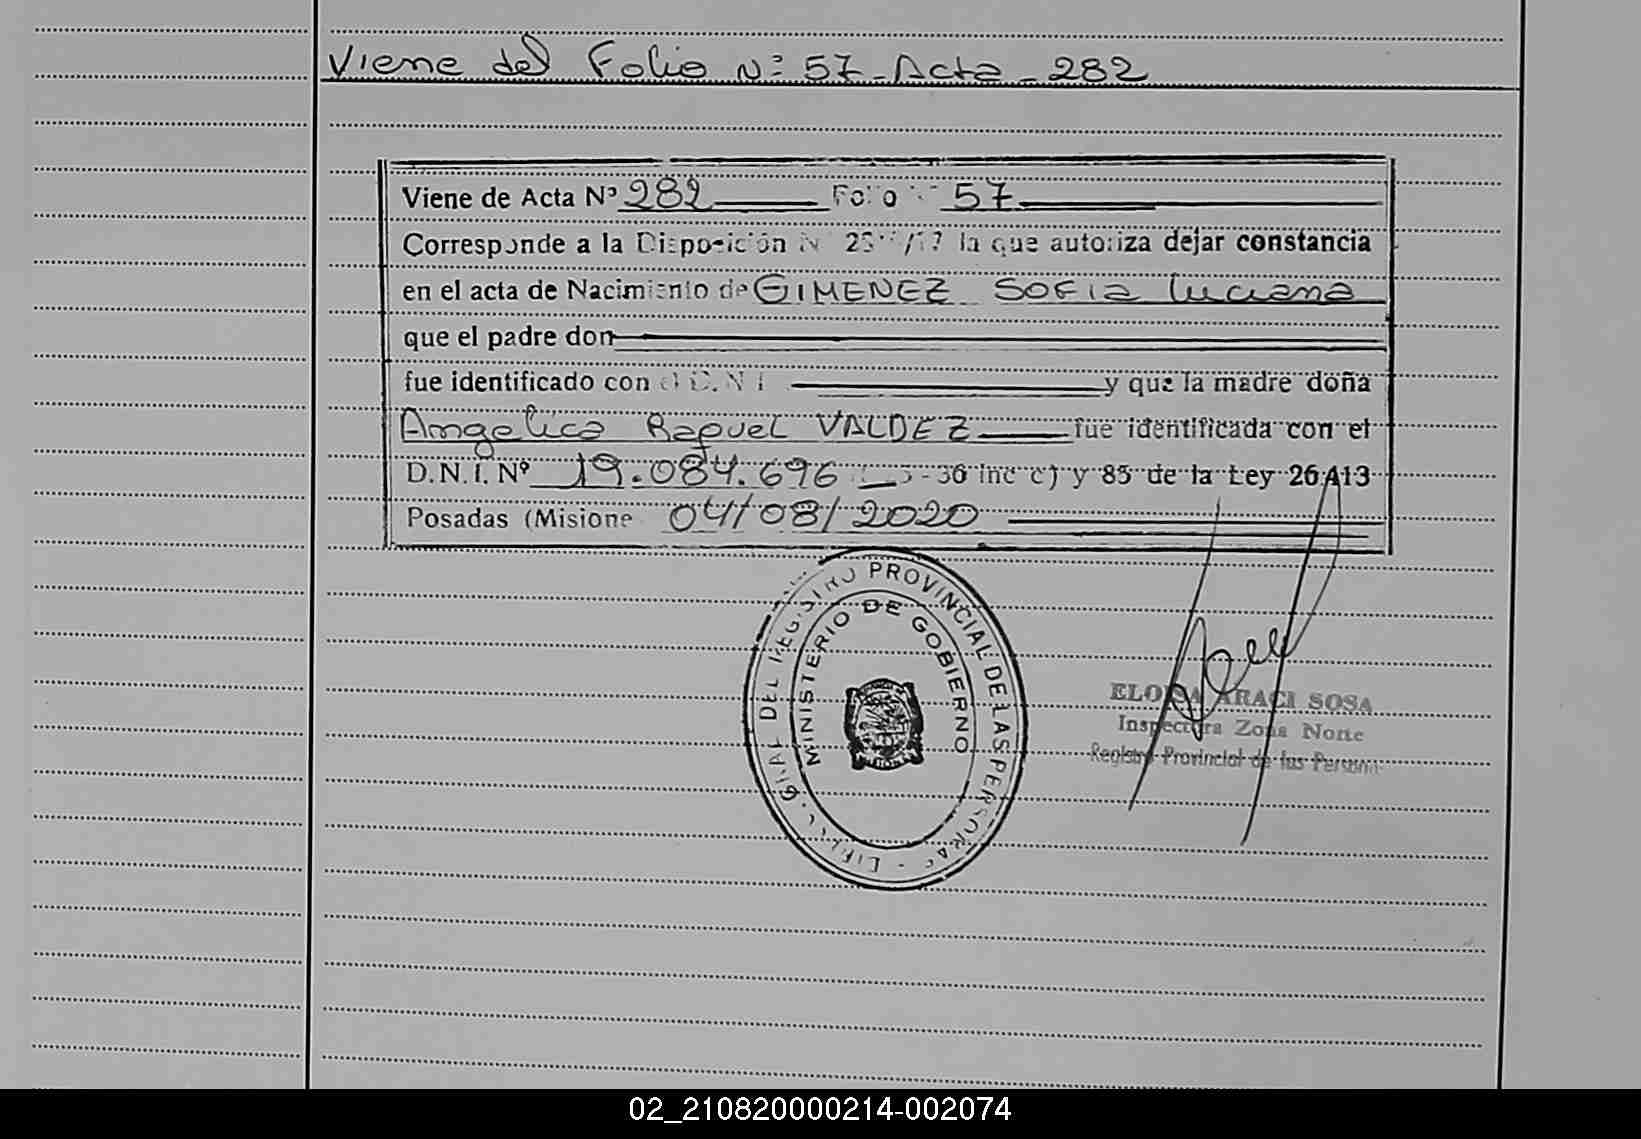 Viene del Folio Nº 57 - Acta - 282
Viene de Acta Nº 282 Folio 57
Corresponde a la Disposición la que autoriza dejar constancia
en el acta de Nacimiento de GIMENEZ SOFIA Luciana
que el padre don
fue identificado con D.N.I y que la madre doña
Angelica Raquel VALDEZ fue identificada con el
D.N.I. Nº 19.084.696 36 inc c) y 85 de la Ley 26.413
Posadas (Misione 04/08/2020
GRAL DEL REGISTRO PROVINCIAL DE LAS PERSONAS
MINISTERIO DE GOBIERNO
ELOISA ARACI SOSA
Inspectora Zona Norte
Registro Provincial de las Persona
02_210820000214-002074